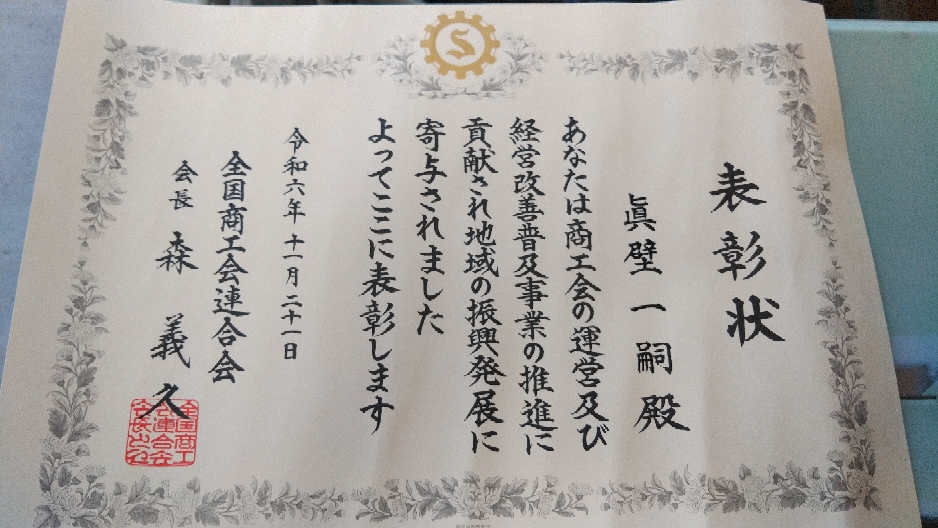 表彰状
眞壁一嗣殿
あなたは商工会の運営及び
経営改善普及事業の推進に
貢献され地域の振興発展に
寄与されました
よってここに表彰します
令和六年十一月二十一日
全国商工会連合会
会長 森義久
全国商工会連合会会長之印